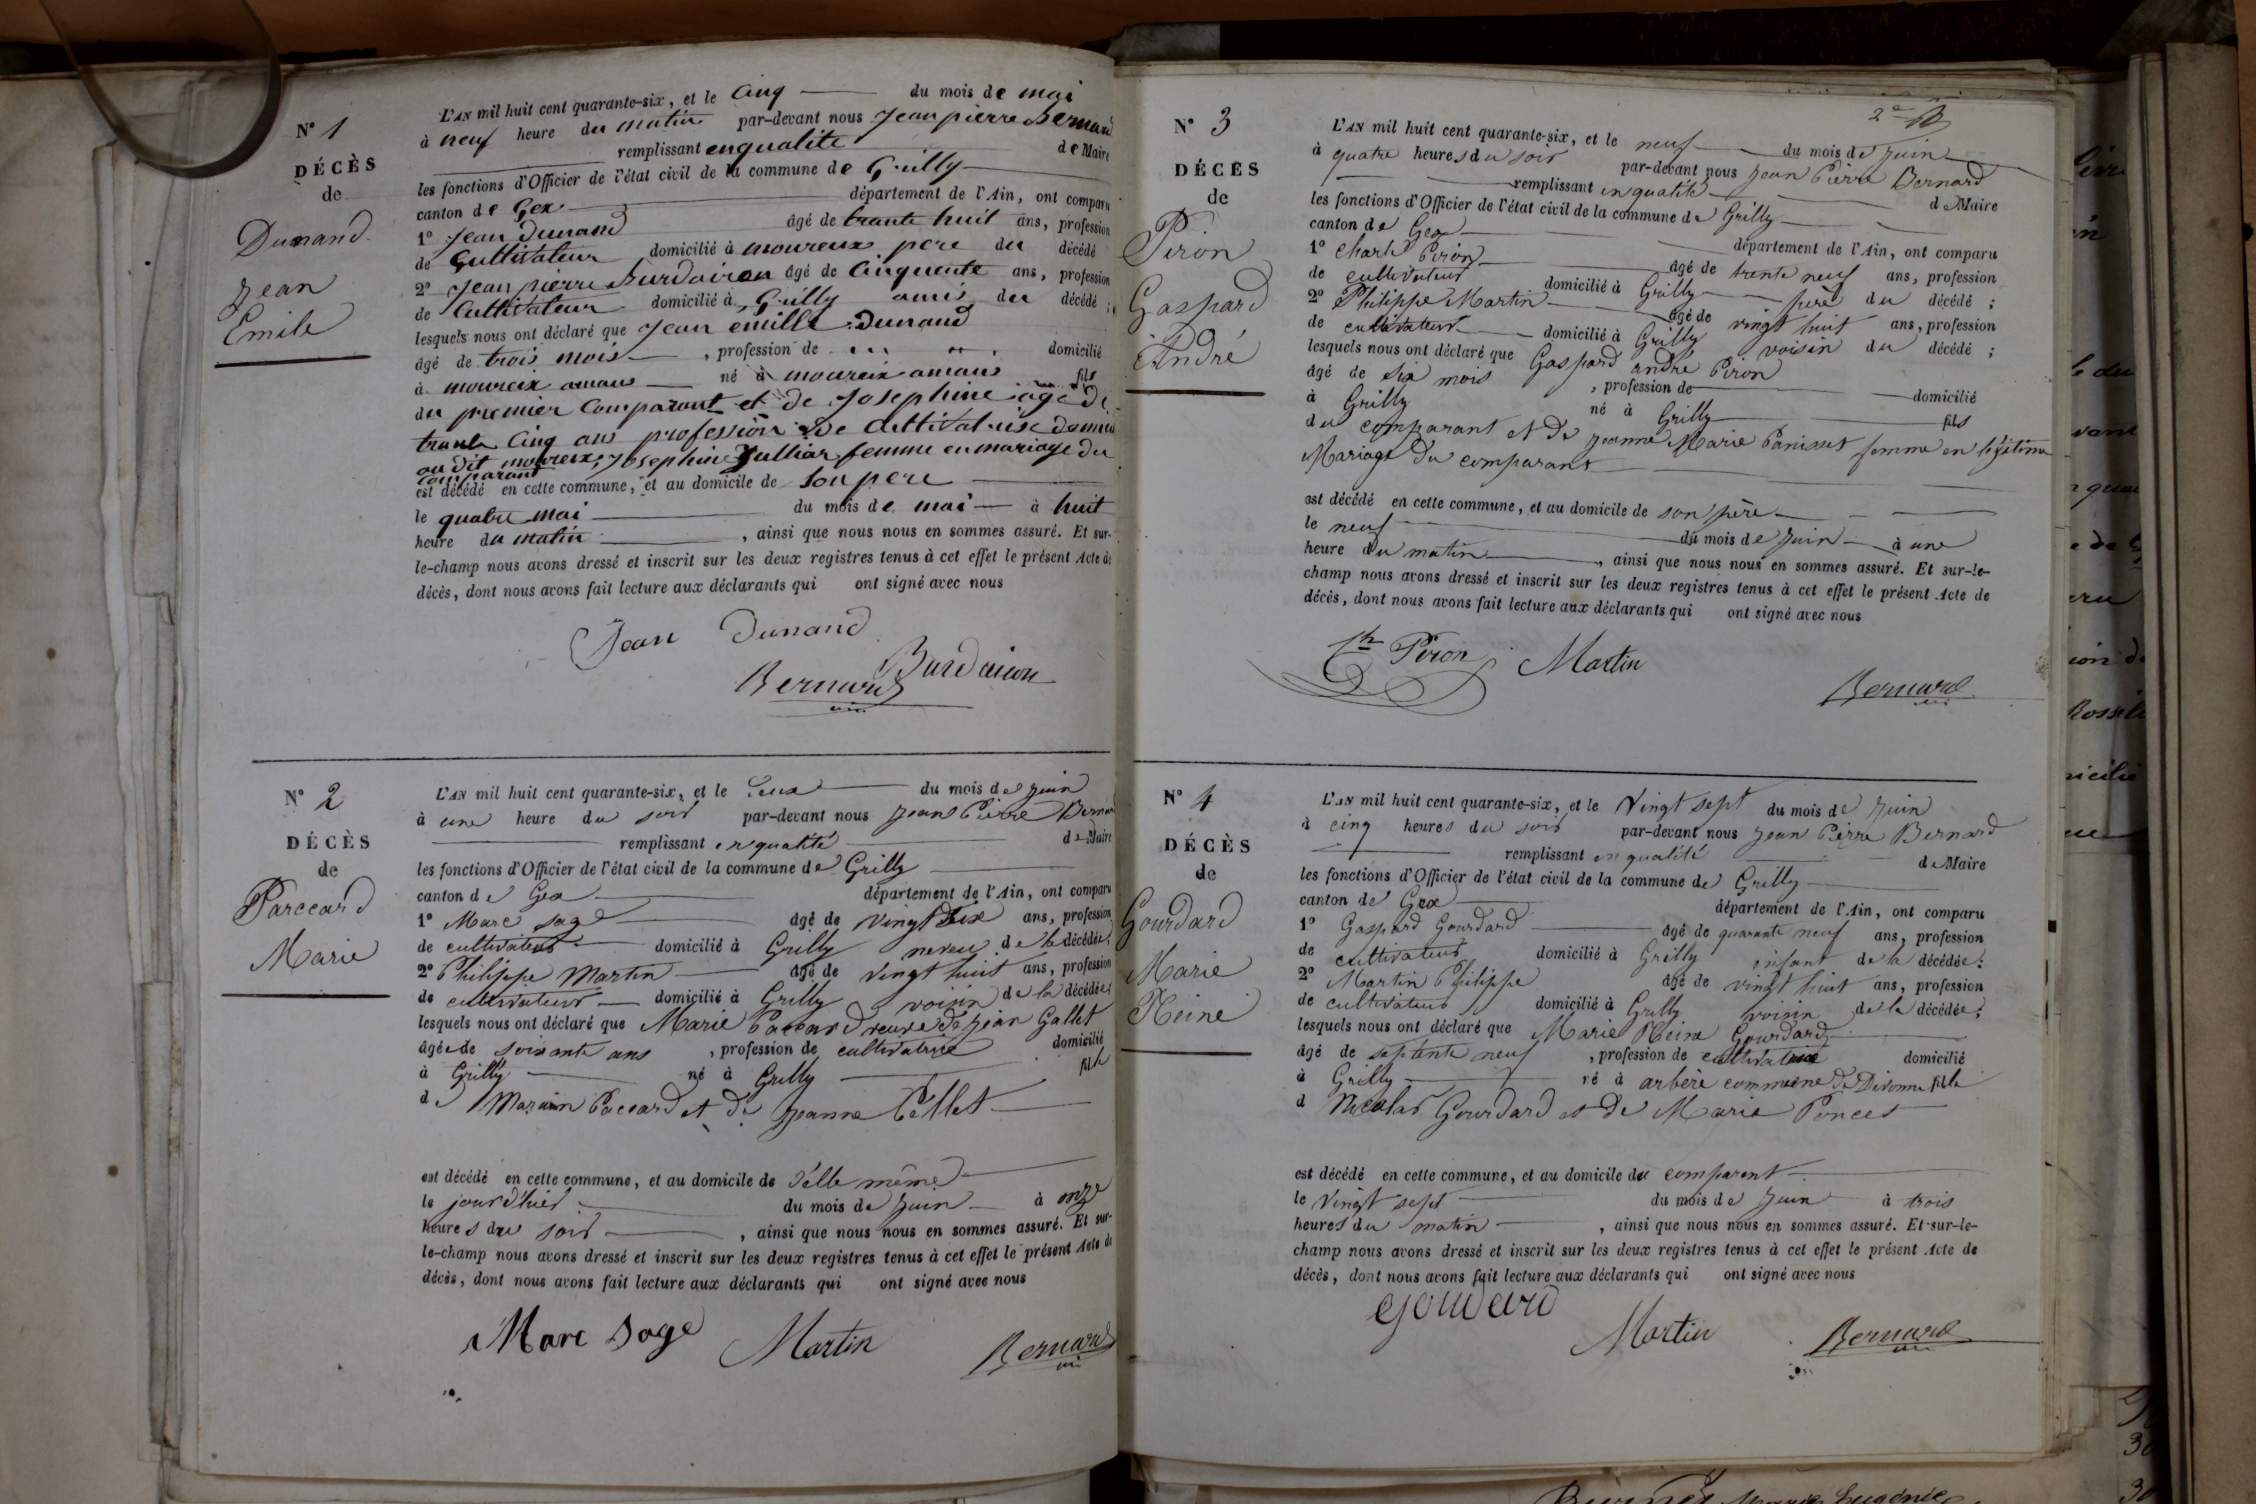 N° 1
DÉCÈS
de
Dunand
Jean
Emile
L'AN mil huit cent quarante-six, et le Cinq du mois de mai
à neuf heure du matin par-devant nous Jean pierre Bernard
remplissant en qualité de Maire
les fonctions d'Officier de l'état civil de la commune de Grilly
canton de Gex département de l'Ain, ont comparu
1° Jean Dunand âgé de trante huit ans, profession
de Cultivateur domicilié à moureux pere du décédé
2° Jean pierre Burdairon âgé de Cinquente ans, profession
de Cultivateur domicilié à Grilly amis du décédé ;
lesquels nous ont déclaré que Jean emille Dunand
âgé de trois mois , profession de domicilié
à moureix né à moureix fils
du premier Comparant et de Josephine âgé de
trante Cinq ans profession de Cultivatrise
au dit moureix, Josephine Julliar femme en mariage du
comparant
est décédé en cette commune, et au domicile de son pere
le quatre mai du mois de mai à huit
heure du matin , ainsi que nous nous en sommes assuré. Et sur-
le-champ nous avons dressé et inscrit sur les deux registres tenus à cet effet le présent Acte de
décès, dont nous avons fait lecture aux déclarants qui ont signé avec nous
Jean Dunand
Burdairon
Bernard
N° 2
DÉCÈS
de
Parccard
Marie
L'AN mil huit cent quarante-six, et le deux du mois de juin
à une heure du soir par-devant nous Jean Pierre Bernard
remplissant en qualité de Maire
les fonctions d'Officier de l'état civil de la commune de Grilly
canton de Gex département de l'Ain, ont comparu
1° Marc Sage âgé de vingt ans, profession
de cultivateur domicilié à Grilly neveu de la décédée ;
2° Philippe Martin âgé de vingt huit ans, profession
de cultivateur domicilié à Grilly voisin de la décédée ;
lesquels nous ont déclaré que Marie Paccard veuve de jean Gallet
âgée de soixante ans , profession de cultivatrice domicilié
à Grilly né à Grilly fille
de Paccard et de jeanne Péllet
est décédé en cette commune, et au domicile de d'élle même
le jourd'huer du mois de juin à onze
heures du soir , ainsi que nous nous en sommes assuré. Et sur-
le-champ nous avons dressé et inscrit sur les deux registres tenus à cet effet le présent Acte de
décès, dont nous avons fait lecture aux déclarants qui ont signé avec nous
Marc Sage Martin Bernard
N° 3
DÉCÈS
de
Piron
Gaspard
André
L'AN mil huit cent quarante-six, et le neuf du mois de juin
à quatre heures du soir par-devant nous Jean Pierre Bernard
remplissant en qualité de Maire
les fonctions d'Officier de l'état civil de la commune de Grilly
canton de Gex département de l'Ain, ont comparu
1° Charle Piron âgé de trente neuf ans, profession
de cultivateur domicilié à Grilly père du décédé ;
2° Philippe Martin âgé de vingt huit ans, profession
de cultivateur domicilié à Grilly voisin du décédé ;
lesquels nous ont déclaré que Gaspard andré Piron
âgé de six mois , profession de domicilié
à Grilly né à Grilly fils
du comparant et de jeanne Marie Panisset femme en légitime
Mariage du comparant
est décédé en cette commune, et au domicile de son père
le neuf du mois de juin à une
heure du matin , ainsi que nous nous en sommes assuré. Et sur-le-
champ nous avons dressé et inscrit sur les deux registres tenus à cet effet le présent Acte de
décès, dont nous avons fait lecture aux déclarants qui ont signé avec nous
Ch Piron Martin
Bernard
N° 4
DÉCÈS
de
Gourdard
Marie
Reine
L'AN mil huit cent quarante-six, et le Vingt sept du mois de juin
à cinq heures du soir par-devant nous jean Pierre Bernard
remplissant en qualité de Maire
les fonctions d'Officier de l'état civil de la commune de Grilly
canton de Gex département de l'Ain, ont comparu
1° Gaspard Gourdard âgé de quarante neuf ans, profession
de cultivateur domicilié à Grilly enfant de la décédée ;
2° Martin Philippe âgé de vingt huit ans, profession
de cultivateur domicilié à Grilly voisin de la décédée ;
lesquels nous ont déclaré que Marie Reine Gourdard
âgé de septante neuf , profession de cultivatrice domicilié
à Grilly né à arbère commune de Divonne fille
d Nicolas Gourdard et de Marie Poncet
est décédé en cette commune, et au domicile du comparent
le Vingt sept du mois de Juin à trois
heures du matin , ainsi que nous nous en sommes assuré. Et sur-le-
champ nous avons dressé et inscrit sur les deux registres tenus à cet effet le présent Acte de
décès, dont nous avons fait lecture aux déclarants qui ont signé avec nous
Martin Bernard